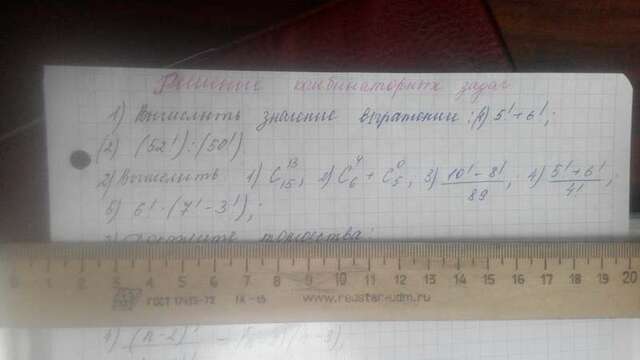 Решение комбинаторных задач
1) Вычислить значение выражения: 1) 5! + 6!;
(2) (52!) : (50!)
2) Вычислить 1) C₁₅¹³; 2) C₆⁴ + C₅⁰; 3) (10! - 8!)/89; 4) (5! + 6!)/4!;
5) 6! · (7! - 3!);
тождества:
0 1 2 3 4 5 6 7 8 9 10 11 12 13 14 15 16 17 18 19 20
ГОСТ 17435-72
www.redstar-udm.ru